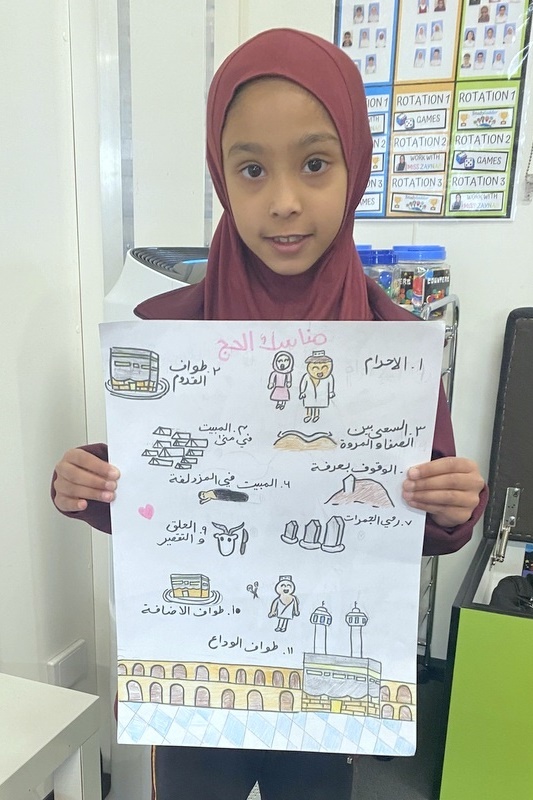 مناسك الحج
١. الاحرام
٢. طواف
القدوم
٣. السعي بين
الصفا و المروة
٣. المبيت
في منى
. الوقوف بعرفة
٦. المبيت في المزدلفة
٧. رمي الجمرات
٩. الحلق
و التقصير
١٠. طواف الاضافة
١١. طواف الوداع
ROTATION 1
ROTATION 1
GAMES
ROTATION 2
ROTATION 2
WORK WITH
GAMES
ROTATION 3
ROTATION 3
WORK WITH
COUNTERS